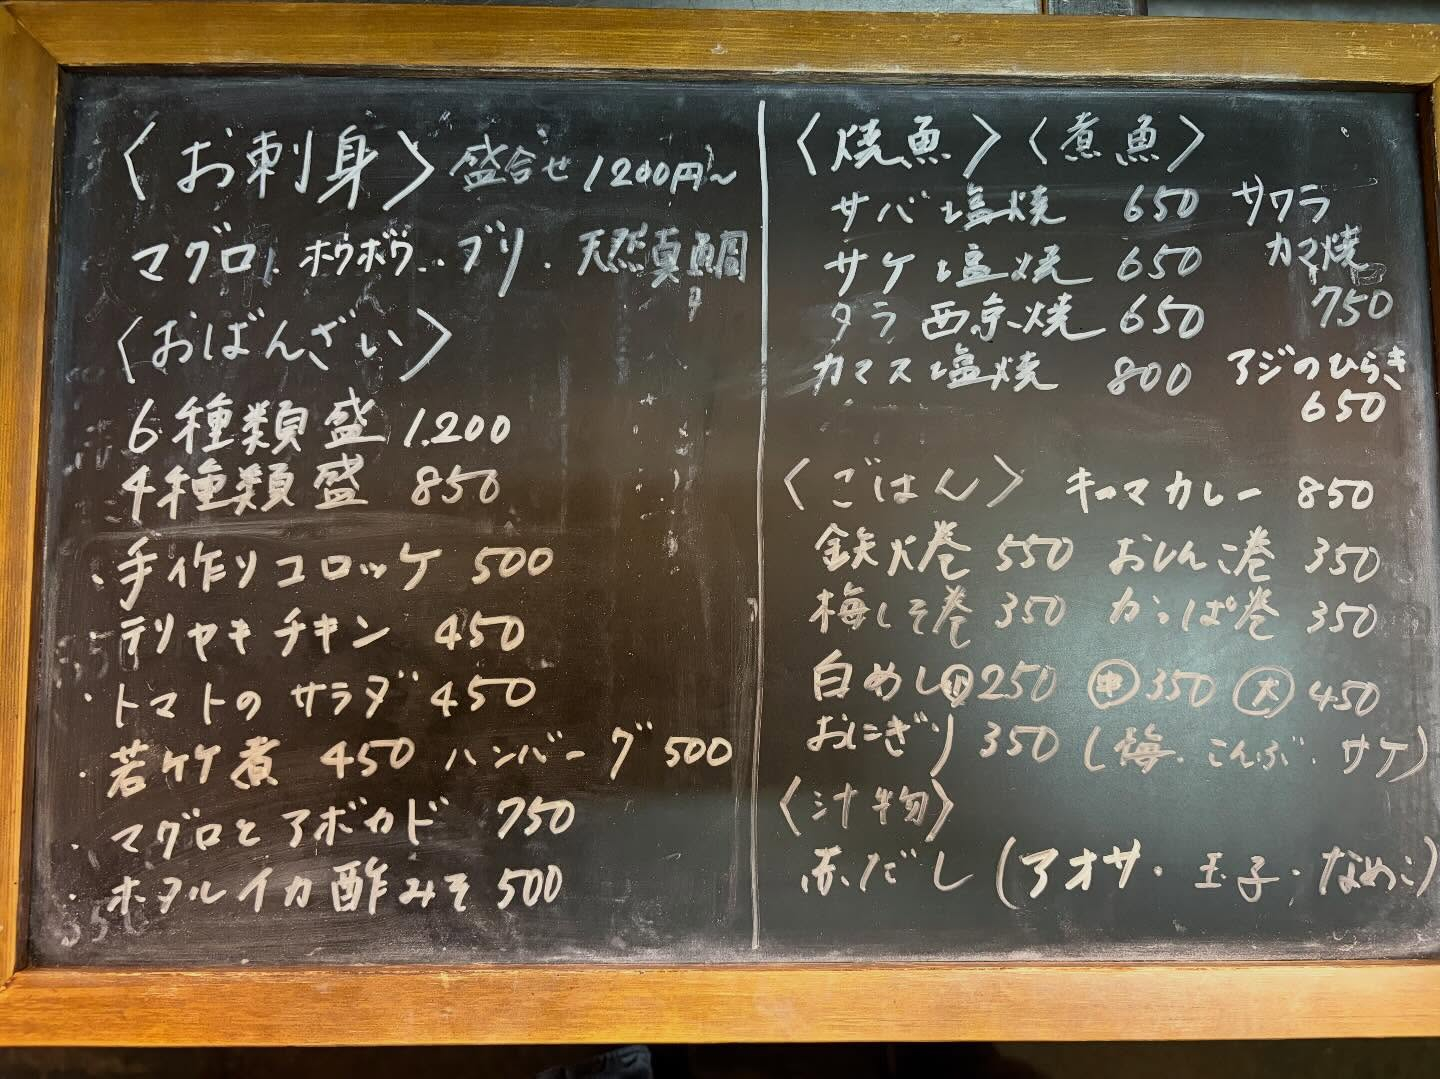 〈お刺身〉盛合せ 1200円〜
マグロ. ホウボウ. ブリ. 天然真鯛
〈おばんざい〉
6種類盛 1.200
4種類盛 850
・手作りコロッケ 500
テリヤキチキン 450
・トマトの サラダ 450
・若竹煮 450 ハンバーグ 500
・マグロとアボカド 750
・ホタルイカ酢みそ 500
〈焼魚〉〈煮魚〉
サバ塩焼 650
サケ塩焼 650
タラ西京焼 650
カマス塩焼 800
サワラ
カマ焼
750
アジのひらき
650
〈ごはん〉 キーマカレー 850
鉄火巻 550 おしんこ巻 350
梅しそ巻 350 かっぱ巻 350
白めし小250 中350 大450
おにぎり 350 (梅・こんぶ・サケ)
〈汁物〉
赤だし (アオサ・玉子・なめこ)